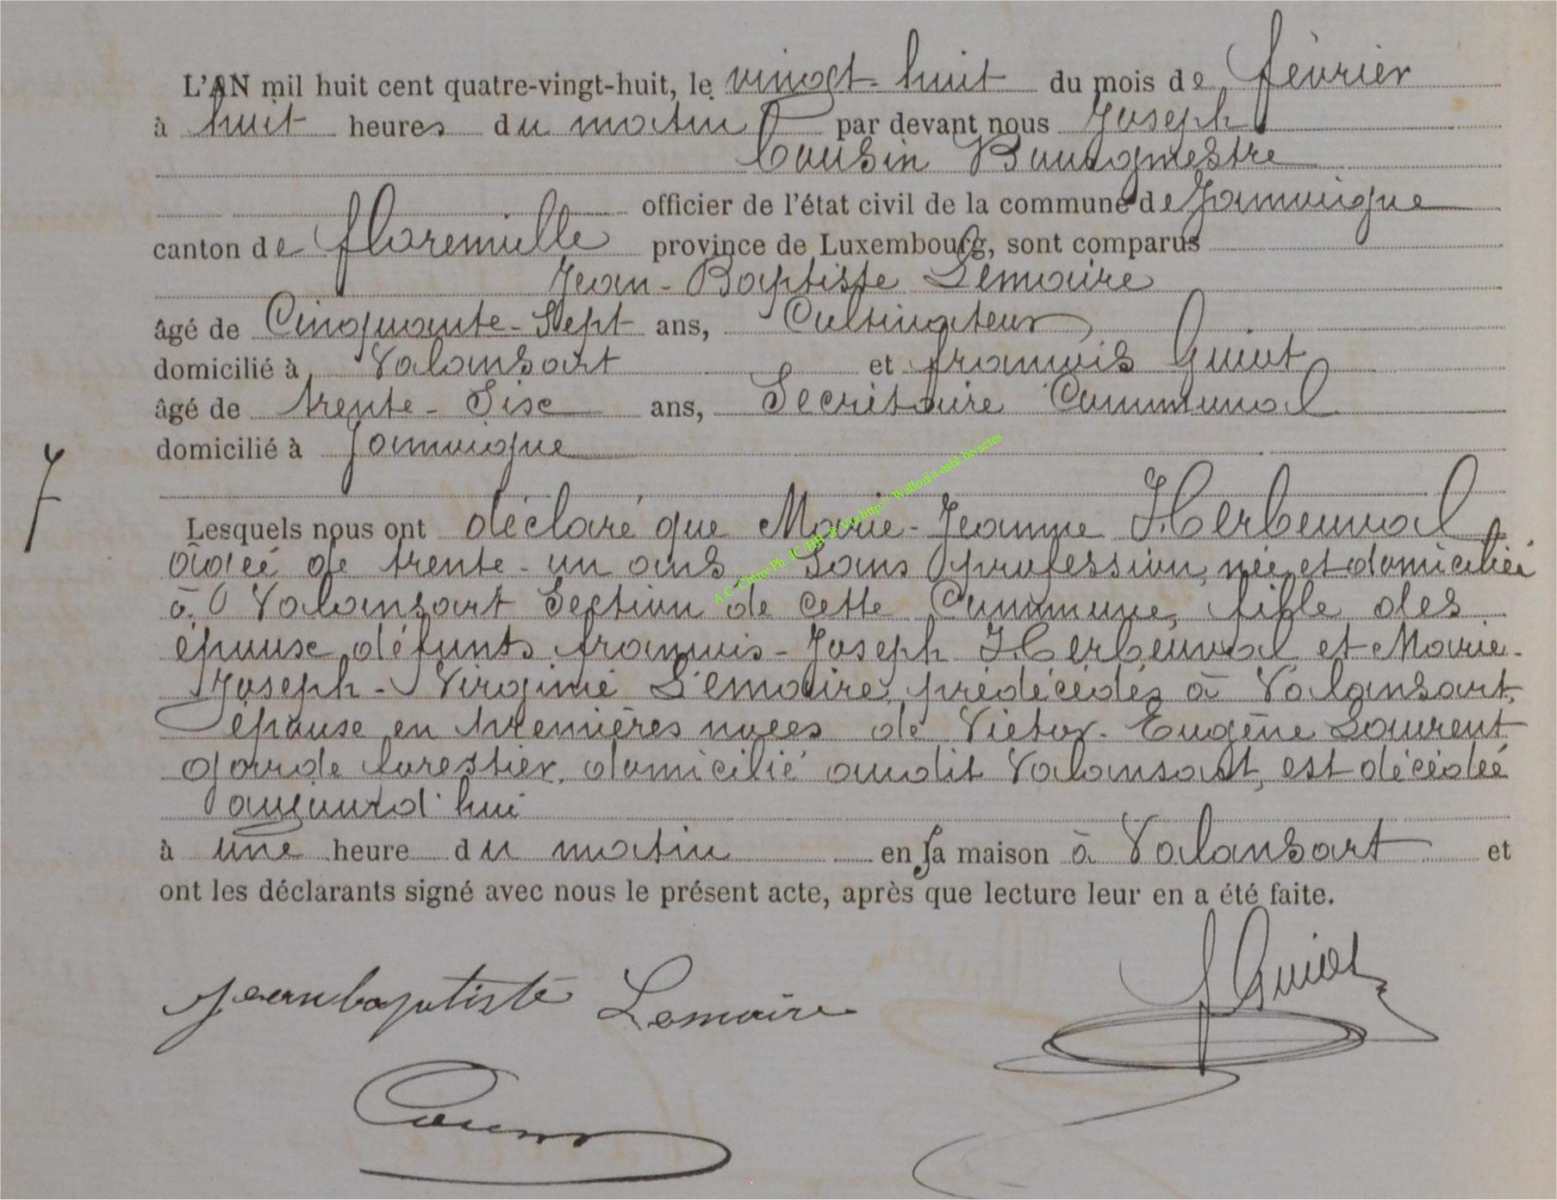 L'AN mil huit cent quatre-vingt-huit, le vingt-huit du mois de février
à huit heures du matin par devant nous Joseph
Cousin Bourgmestre
officier de l'état civil de la commune de Jamoigne
canton de florenville province de Luxembourg, sont comparus
Jean-Baptiste Lemaire
âgé de Cinquante-Sept ans, Cultivateur
domicilié à Valansart et françois Guiot
âgé de trente-Six ans, Secrétaire Communal
domicilié à Jamoigne
7
Lesquels nous ont déclaré que Marie-Jeanne Herbeuval
âgée de trente-un ans Sans profession, née et domiciliée
à Valansart Section de cette Commune, fille des
époux défunts françois-Joseph Herbeuval et Marie-
Joseph-Virginie Lemaire, prédécédés à Valansart,
épouse en premières noces de Victor-Eugène Laurent
garde forestier, domicilié audit Valansart, est décédée
aujourd'hui
à une heure du matin en sa maison à Valansart et
ont les déclarants signé avec nous le présent acte, après que lecture leur en a été faite.
Jean baptiste Lemaire
f Guiot
Cousin